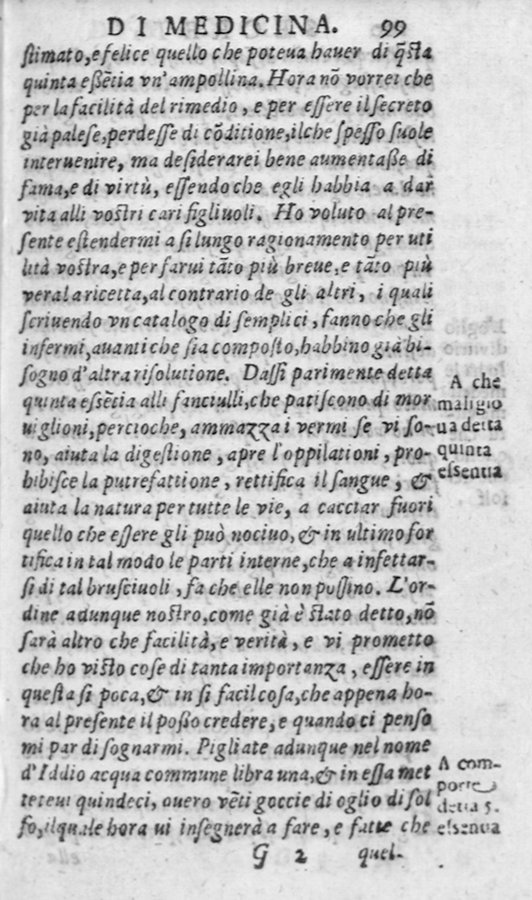 DI MEDICINA. 99
ſtimato, e felice quello che poteua hauer di q̃ſta
quinta eßẽtia vn'ampollina. Hora nõ vorrei che
per la facilità del rimedio, e per eſſere il ſecreto
già paleſe, perdeſſe di cõditione, ilche ſpeſſo ſuole
interuenire, ma deſiderarei bene aumentaße di
fama, e di virtù, eſſendo che egli habbia a dar
vita alli voſtri cari figliuoli. Ho voluto al pre-
ſente eſtendermi a ſi lungo ragionamento per uti
lità voſtra, e per farui tãto più breue, e tãto più
vera la ricetta, al contrario de gli altri, i quali
ſcriuendo vn catalogo di ſemplici, fanno che gli
infermi, auanti che ſia compoſto, habbino già bi-
ſogno d'altra riſolutione. Daſſi parimente detta
quinta eſsẽtia alli fanciulli, che patiſcono di mor
uiglioni, percioche, ammazza i vermi ſe vi ſo-
no, aiuta la digeſtione, apre l'oppilationi, pro-
hibiſce la putrefattione, rettifica il ſangue, &
aiuta la natura per tutte le vie, a cacciar fuori
quello che eſſere gli può nociuo, & in ultimo for
tifica in tal modo le parti interne, che a infettar-
ſi di tal bruſciuoli, fa che elle non poſſino. L'or-
dine adunque noſtro, come già è ſtato detto, nõ
ſarà altro che facilità, e verità, e vi prometto
che ho viſto coſe di tanta importanza, eſſere in
queſta ſi poca, & in ſi facil coſa, che appena ho-
ra al preſente il poſſo credere, e quando ci penſo
mi par di ſognarmi. Pigliate adunque nel nome
d'Iddio acqua commune libra una, & in eſſa met
teteui quindeci, ouero vẽti goccie di oglio di ſol
fo, ilquale hora ui inſegnerà a fare, e fatte che
G 2 quel-
A che
maligio
ua detta
quinta
eſſentia
A com-
porre
detta 5.
eſsentia